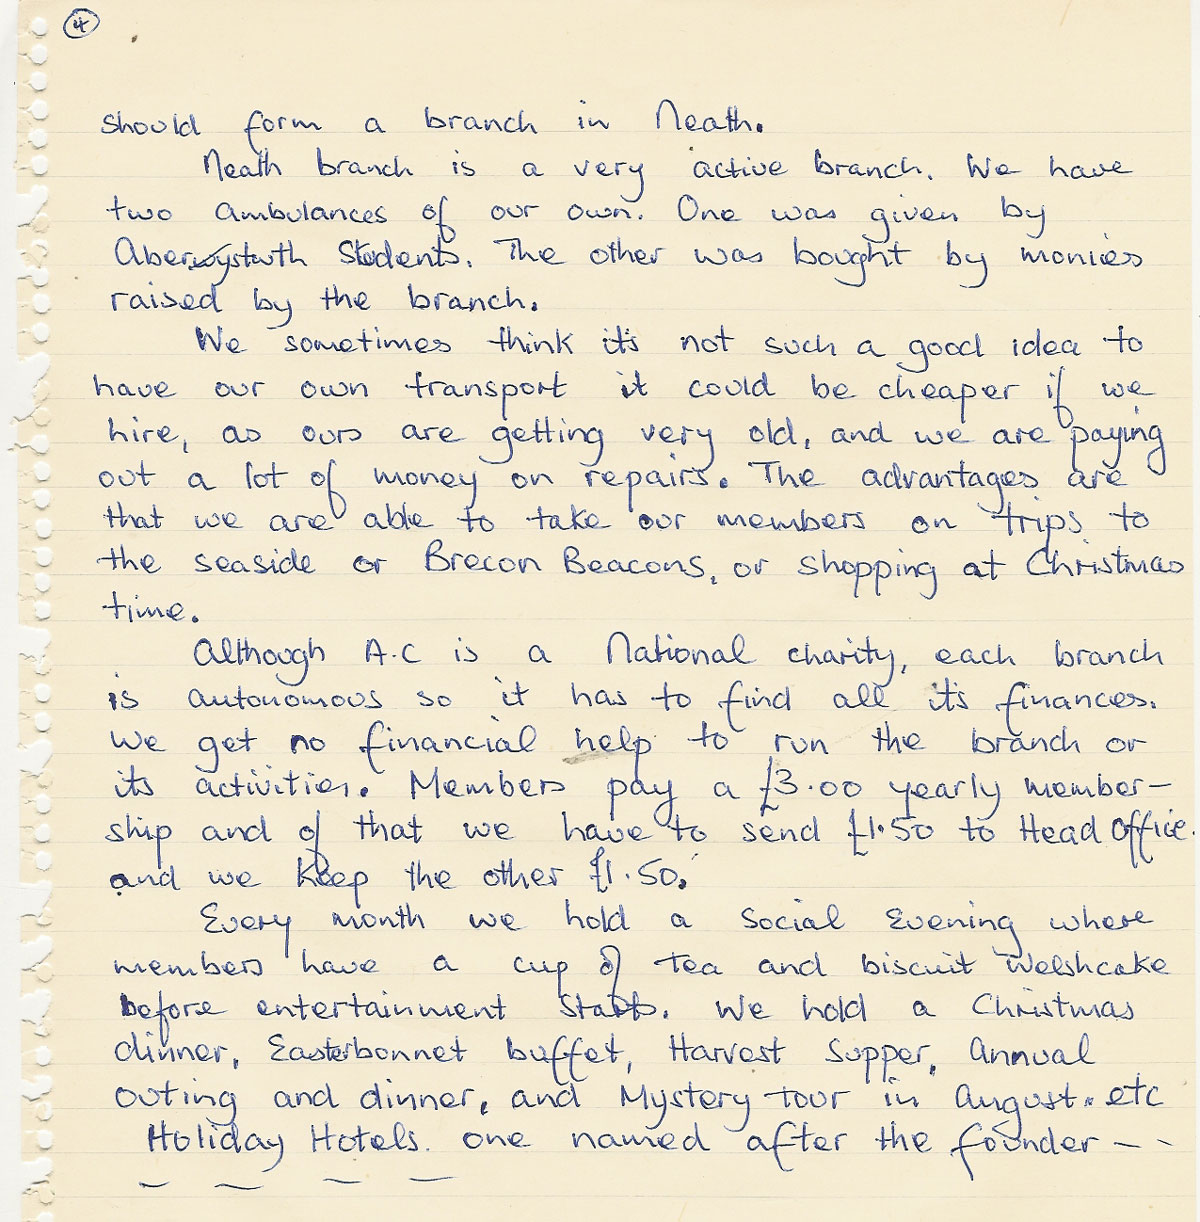 4
should form a branch in Neath.
Neath branch is a very active branch. We have
two ambulances of our own. One was given by
Aberwystwth Students. The other was bought by monies
raised by the branch.
We sometimes think it's not such a good idea to
have our own transport it could be cheaper if we
hire, as ours are getting very old, and we are paying
out a lot of money on repairs. The advantages are
that we are able to take our members on trips to
the seaside or Brecon Beacons, or shopping at Christmas
time.
Although A.C is a National charity, each branch
is autonomous so it has to find all its finances.
We get no financial help to run the branch or
its activities. Members pay a £3.00 yearly member-
ship and of that we have to send £1.50 to Head Office.
and we keep the other £1.50.
Every month we hold a Social Evening where
members have a cup of tea and biscuit Welshcake
before entertainment starts. We hold a Christmas
dinner, Easterbonnet buffet, Harvest Supper, Annual
outing and dinner, and Mystery tour in August. etc
Holiday Hotels. one named after the founder - - -